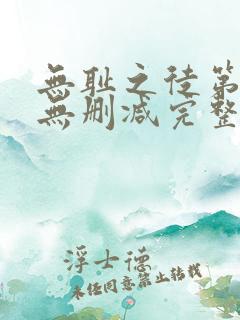 無耻之徒第
無删减完整
浮士德
未经同意禁止转载